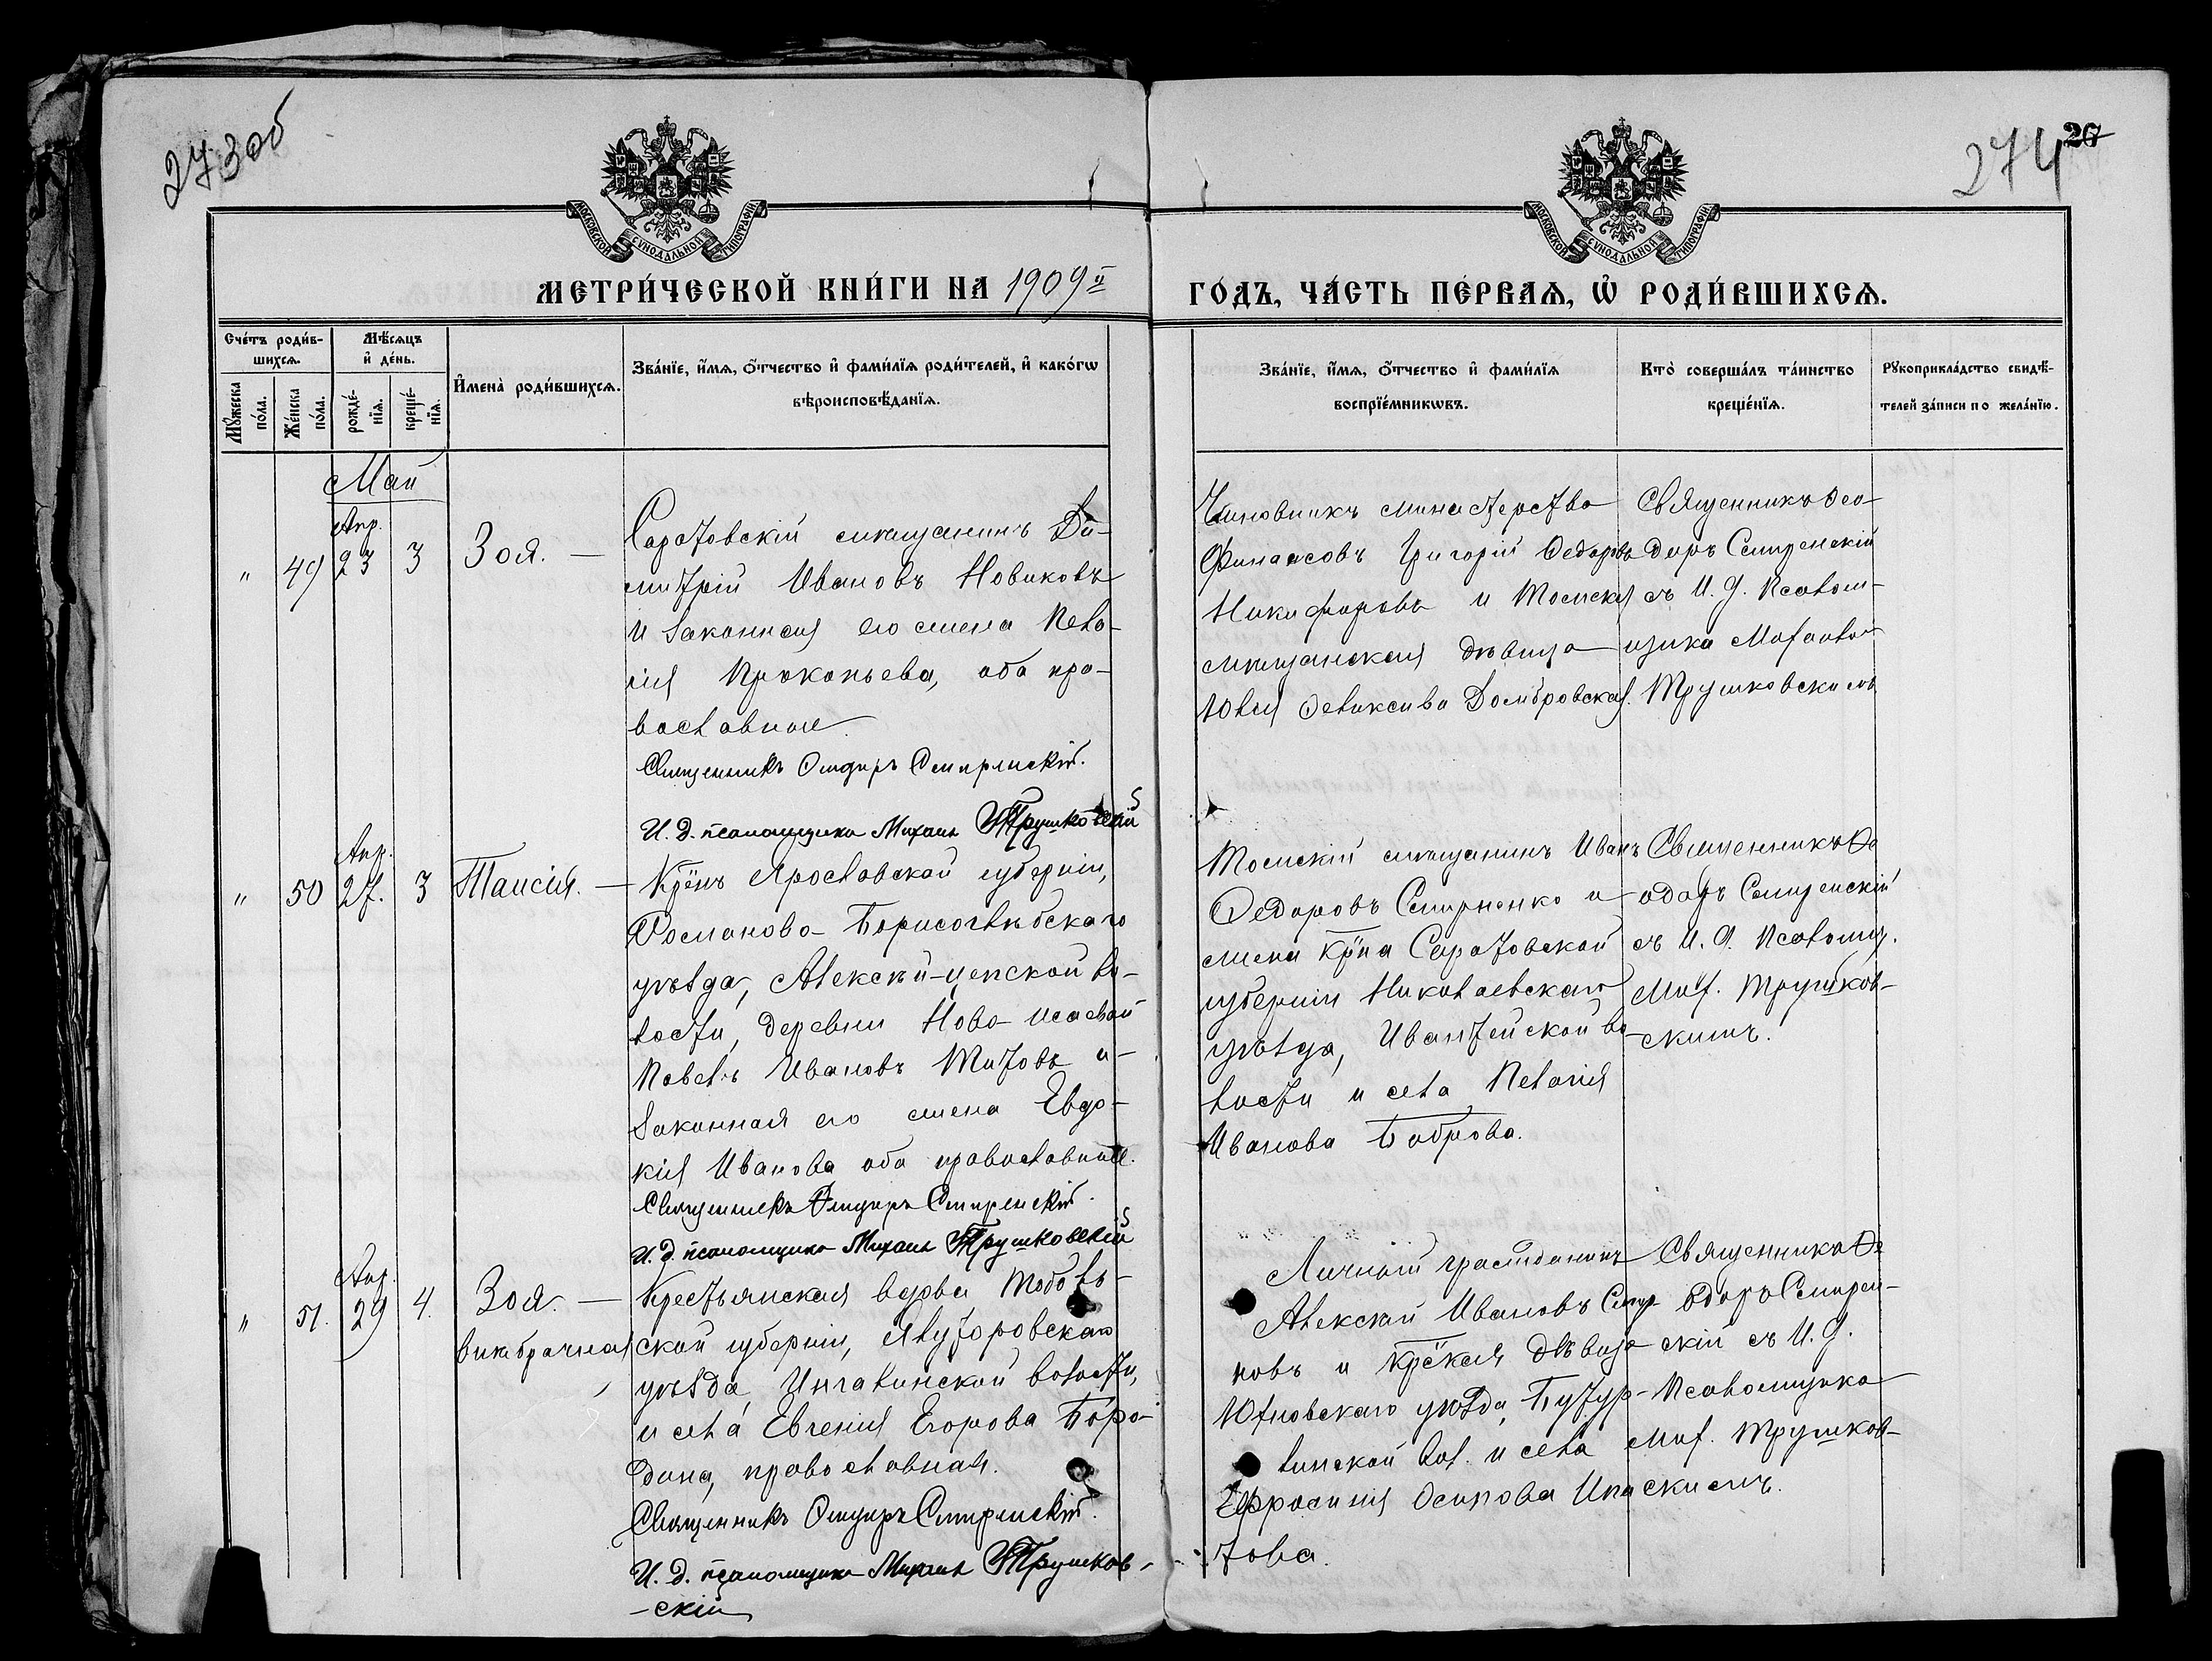 273об
274
26
МОСКОВСКОЙ СѴНОДАЛЬНОЙ ТИПОГРАФІИ
МОСКОВСКОЙ СѴНОДАЛЬНОЙ ТИПОГРАФІИ
МЕТРИ́ЧЕСКОЙ КНИ́ГИ НА 1909й
ГО́ДЪ, ЧА́СТЬ ПЕ́РВАѦ, Ѡ҆ РОДИ́ВШИХСѦ.
Сче́тъ роди́в-
шихсѧ.
Мꙋ́жеска по́ла.
Же́нска по́ла.
Мѣ́сѧцъ
и҆ де́нь.
рожде́-
нїѧ.
креще́-
нїѧ.
И҆мена̀ роди́вшихсѧ.
Зва́нїе, и҆́мѧ, ѻ҆́тчество и҆ фами́лїѧ роди́телей, и҆ како́гѡ
вѣроисповѣ́данїѧ.
Зва́нїе, и҆́мѧ, ѻ҆́тчество и҆ фами́лїѧ
воспрїе́мникѡвъ.
Кто̀ соверша́лъ та́инство
креще́нїѧ.
Рꙋкоприкла́дство свидѣ́-
телей за́писи по жела́нїю.
Май
Апр.
" 49 23 3 Зоя. —
Саратовскій мѣщанинъ Ди-
митрій Ивановъ Новиковъ
и законная его жена Пела-
гія Прокопьева, оба пра-
вославные.
Священникъ Ѳеодоръ Смиренскій.
И. д. псаломщика Михаилъ Трушковскій
Чиновникъ министерства
Финансовъ Григорій Ѳедоровъ
Никифоровъ и Томская
мѣщанская дѣвица
Юлія Феликсива Домбровская.
Священникъ Ѳео-
доръ Смиренскій
съ И. д. Псалом-
щика Михаиломъ
Трушковскимъ
Апр.
" 50 27. 3 Таисія. —
Кр̃нъ Ярославской губерніи,
Романово-Борисоглѣбскаго
уѣзда, Алексѣй-цевской во-
лости, деревни Ново-Исаевой
Павелъ Ивановъ Титовъ и
законная его жена Евдо-
кія Иванова оба православные.
Священникъ Ѳеодоръ Смиренскій.
И. д. псаломщика Михаилъ Трушковскій
Томскій мѣщанинъ Иванъ
Ѳедоровъ Смирненко и
жена кр̃на Саратовской
губерніи Николаевскаго
уѣзда, Ивантейской во-
лости и села Пелагія
Иванова Боброва.
Священникъ Ѳе
одоръ Смиренскій
съ И. д. Псаломщ.
Мих. Трушков-
скимъ.
Апр.
" 51. 29 4. Зоя. —
внѣбрачная
Крестьянская вдова Тоболь-
ской губерніи, Ялуторовскаго
уѣзда, Ингалинской волости,
и села Евгенія Егорова Боро-
дина, православная.
Священникъ Ѳеодоръ Смиренскій.
И. д. псаломщика Михаилъ Трушков-
-скій
Личный гражданинъ
Алексѣй Ивановъ Смир-
новъ и кр̃ская дѣвица
Юхновскаго уѣзда, Бутур-
линской вол. и села
Ефросинія Осипова Ипа
това.
Священникъ Ѳе
одоръ Смирен-
скій съ И. д.
Псаломщика
Мих. Трушков-
скимъ.